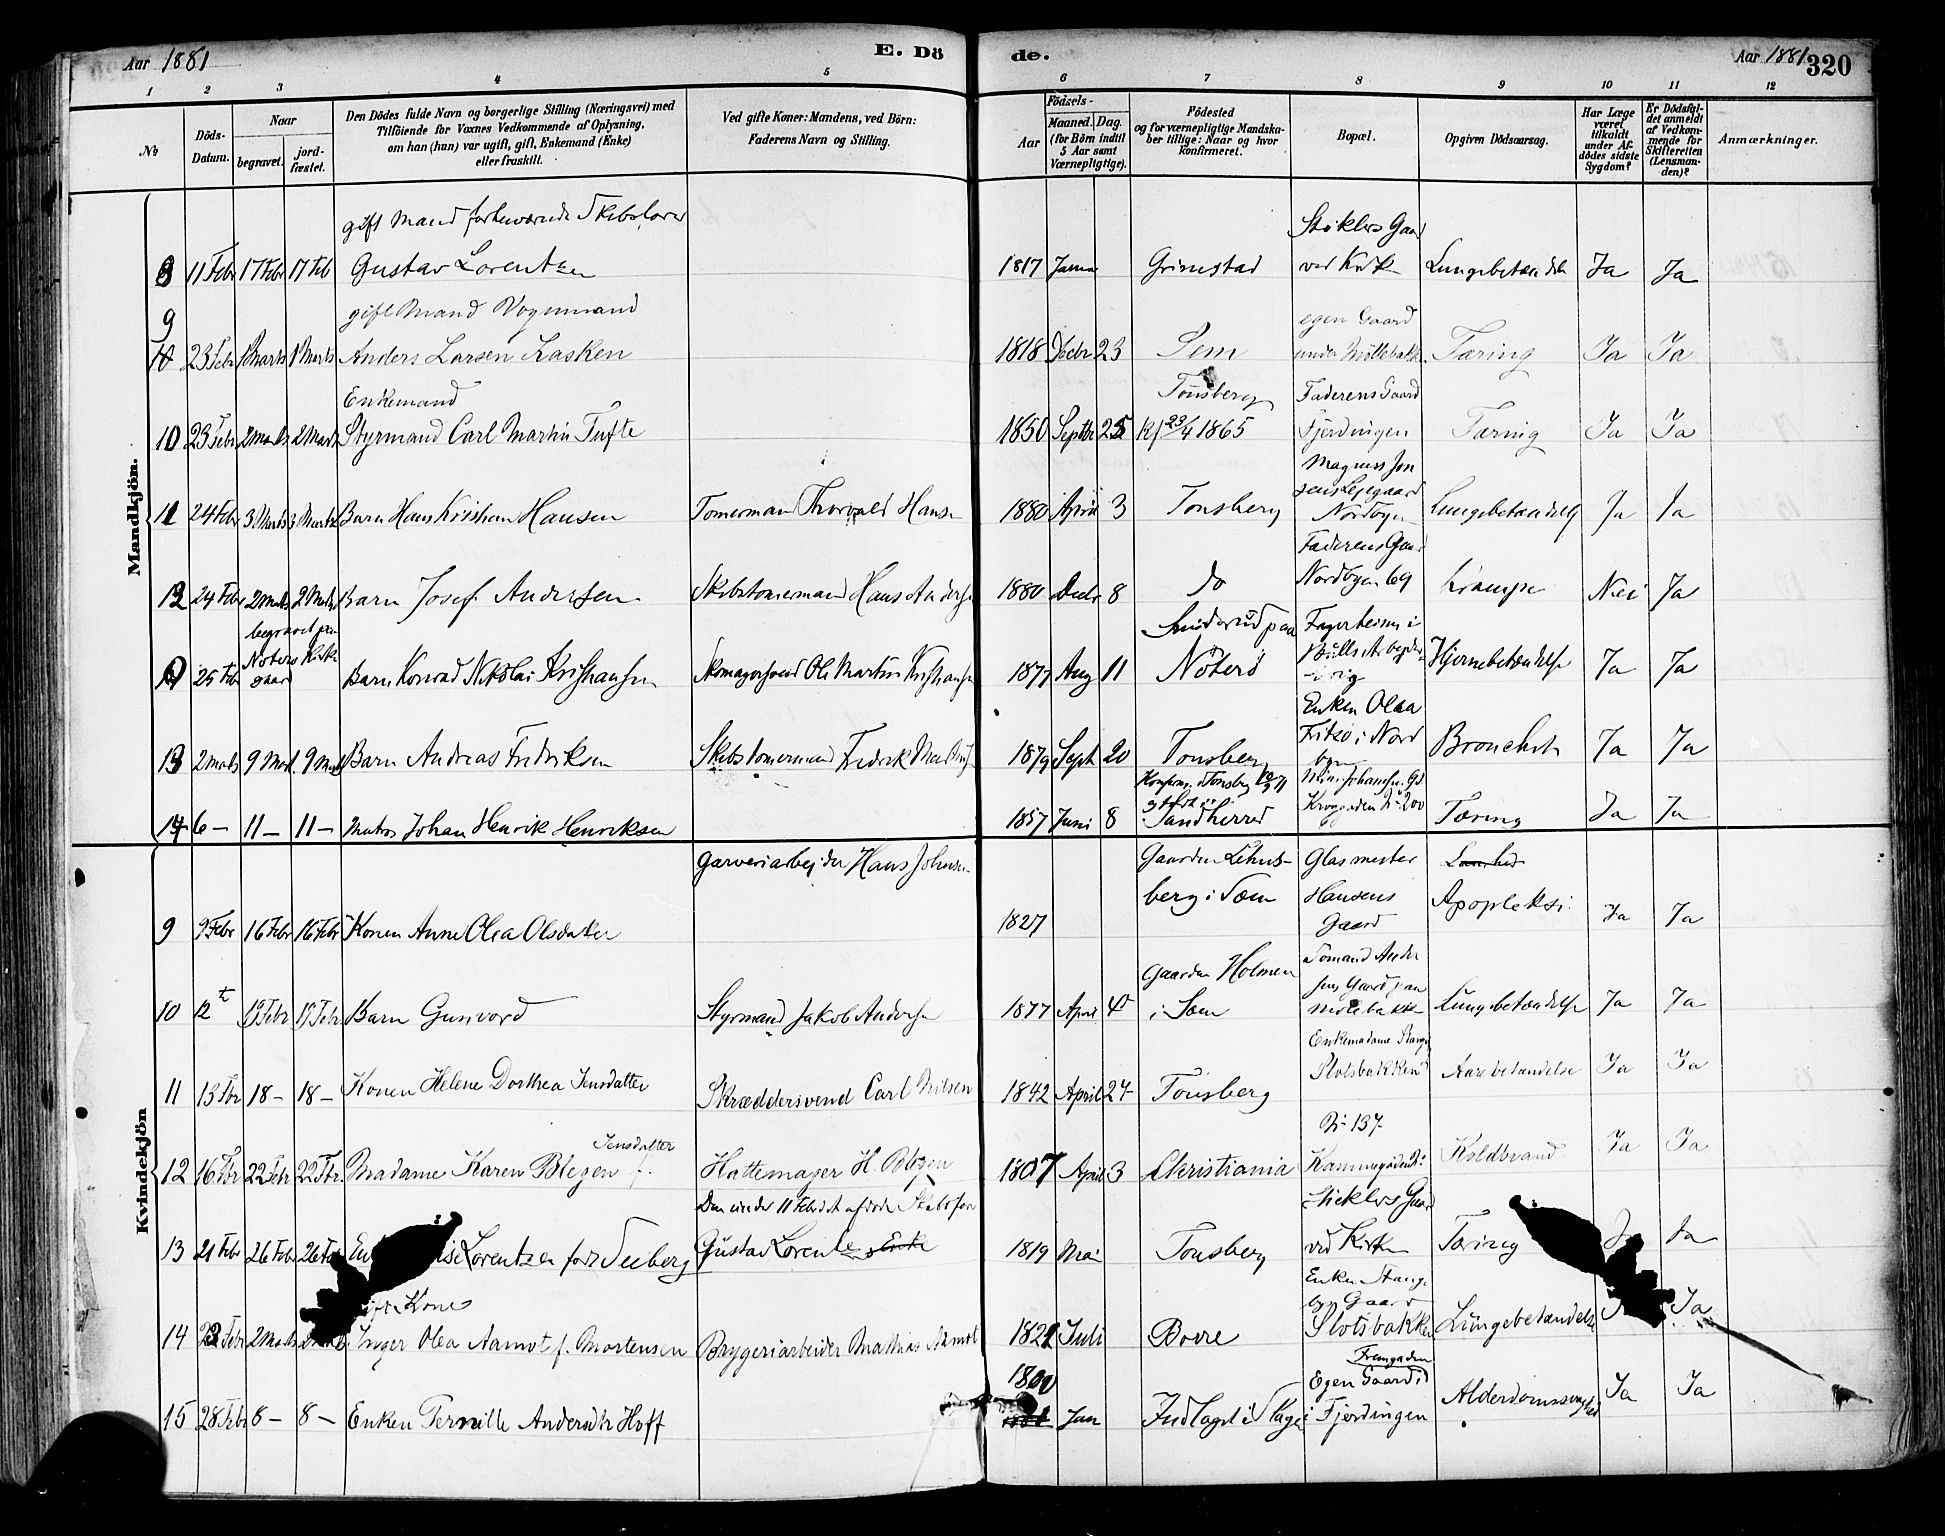 Aar 1881
E. Dö
de.
Aar 1881 320
1 2 3 4 5 6 7 8 9 10 11 12
№
Döds-
Datum.
Naar
begravet.
jord-
fæstet.
Den Dödes fulde Navn og borgerlige Stilling (Næringsvei) med
Tilföiende for Voxnes Vedkommende af Oplysning,
om han (hun) var ugift, gift, Enkemand (Enke)
eller fraskilt.
Ved gifte Koner: Mandens, ved Börn:
Faderens Navn og Stilling.
Födsels-
Aar
Maaned. Dag.
(for Börn indtil
5 Aar samt
Værnepligtige).
Födested
og for værnepligtige Mandska-
ber tillige: Naar og hvor
konfirmeret.
Bopæl.
Opgiven Dödsaarsag.
Har Læge
været
tilkaldt
under Af-
dödes sidste
Sygdom?
Er Dödsfal-
det anmeldt
af Vedkom-
mende for
Skifteretten
(Lensman-
den)?
Anmærkninger.
Mandkjön.
gift Mand forhenværende Skibsfører
8 11 Febr 17 Febr 17 Feb Gustav Lorentzen 1817 Grimstad ved Kirk Lungebetændelse Ja Ja
9
gift Mand Vognmand
egen Gaard
23 Febr 1 Marts 1 Marts Anders Larsen Kasken 1818 23 Sem under Møllebakk Tæring Ja Ja
Enkemand
Tønsberg
Faderens Gaard
10 23 Febr 2 Marts 2 Marts Styrmand Carl Martin Tufte 1850 Septbr 25 Kf 23/4 1865 Fjerdingen Tæring Ja Ja
11 24 Febr 3 Marts 3 Marts Barn Hans Kristian Hansen Tømerman Thorvald Hansen 1880 April 3 Tønsberg Nordbyen Lungebetændelse Ja Ja
Faderens Gaard
12 24 Febr 2 Marts 2 Marts Barn Josef Andersen Skibstømermand Hans Andersen 1880 Decbr 8 do Nordbyen 69 Krampe Nei Ja
begravet paa
Nøterø Kirke
gaard
25 Febr Barn Konrad Nikolai Kristiansen Skomagersvend Ole Martin Kristiansen 1877 Aug 11 Nøterø Hjernebetændelse Ja Ja
Enken Olea
13 2 Marts 9 Marts 9 Marts Barn Andreas Fredriksen Skibstømermand Fredrik 1879 Sept 20 Tønsberg Nord Bronchit Ja Ja
14 6 – 11 – 11 – Matros Johan Henrik Henriksen 1857 Juni 8 Sandherred Tæring Ja Ja
Kvindekjön
Garveriarbejder Hans Johnsen
Gaarden
berg i Sem
Glasmester
Hansens
Gaard
9 9 Febr 16 Febr 16 Febr Konen Anne Olea Olsdatter 1827 Apopleksi Ja Ja
Gaarden Holmen
10 12 19 Febr 19 Febr Barn Gunvord Styrmand Jakob Andersen 1877 April 4 i Sem Møllebakken Lungebetændelse Ja Ja
Enkemadame Stange
11 13 Fbr 18 – 18 – Konen Helene Dorthea Jensdatter Skræddersvend Carl Nilsen 1842 April 24 Tønsberg Slotsbakken Aarebetændelse Ja Ja
Jensdatter
Nr 137
12 16 Fbr 22 Febr 22 Fbr Madame Karen Blegen f. Hattemager H. Blegen 1807 April 3 Christiania Koldbrand Ja Ja
Den under 11 Febr afdøde Skibsfører
Gaard
13 21 Febr 26 Febr 26 Feb Lorentzen født Seeberg Gustav Lorentzens Enke 1819 Mai Tønsberg ved Kirken Tæring Ja Ja
gift Kone
Enken Stange
Gaard
14 23 Febr 2 Marts Inger Olea Aamot f. Mortensen Brygeriarbeider Mathias Aamot 1821 Juli Borre Slotsbakken Lungebetændelse Ja
1800
Egen Gaard i
15 28 Febr 8 – 8 – Enken Pernille Andersdtr Hoff Jan Indlagt i Slagen Fjerdingen Alderdomssvaghed Ja Ja